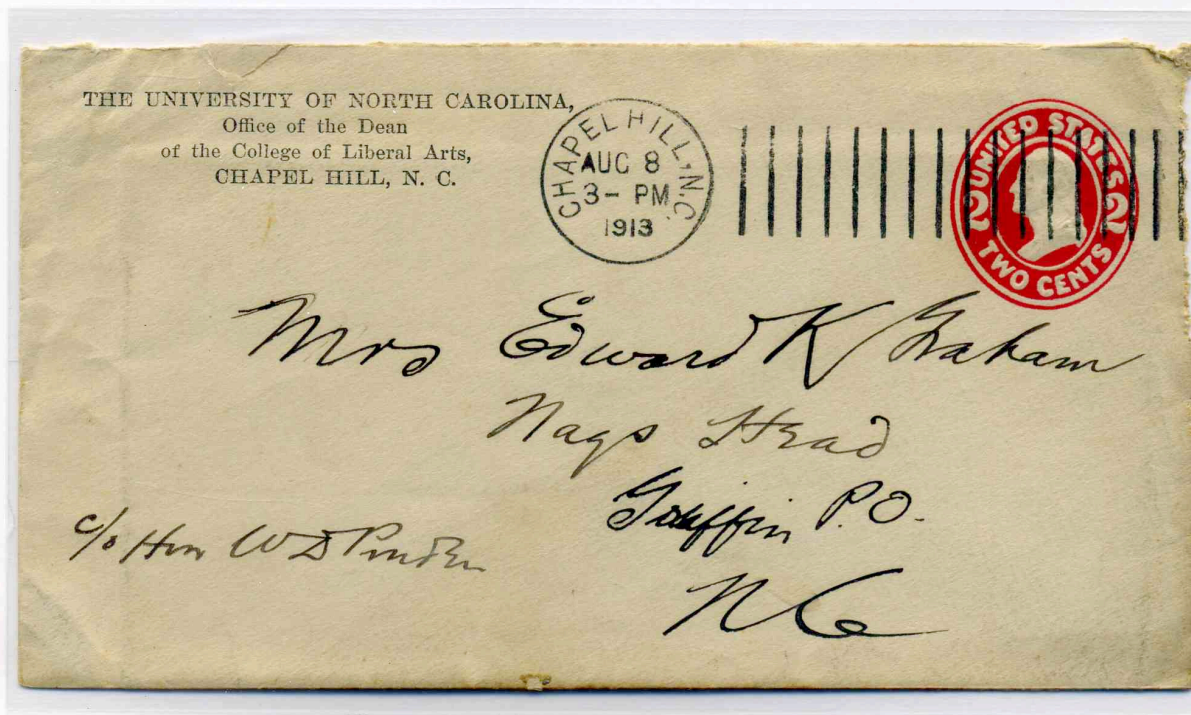 THE UNIVERSITY OF NORTH CAROLINA,
Office of the Dean
of the College of Liberal Arts,
CHAPEL HILL, N. C.
CHAPEL HILL, N.C.
AUG 8
3- PM
1913
UNITED STATES
2 2
TWO CENTS
Mrs Edward K Graham
Nags Head
Griffin P.O.
N C
c/o Hon W D Pruden